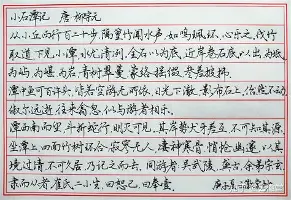 小石潭记 唐 柳宗元
从小丘西行百二十步,隔篁竹闻水声,如鸣珮环,心乐之,伐竹
取道,下见小潭,水尤清冽,全石以为底,近岸卷石底以出,为坻,
为屿,为嵁,为岩,青树翠蔓,蒙络摇缀,参差披拂。
潭中鱼可百许头,皆若空游无所依,日光下澈,影布石上,佁然不动,
俶尔远逝,往来翕忽,似与游者相乐。
潭西南而望,斗折蛇行,明灭可见,其岸势犬牙差互,不可知其源。
坐潭上,四面竹树环合,寂寥无人,凄神寒骨,悄怆幽邃,以其
境过清,不可久居,乃记之而去。同游者,吴武陵,龚古,余弟宗玄
隶而从者,崔氏二小生,曰恕己,曰奉壹。